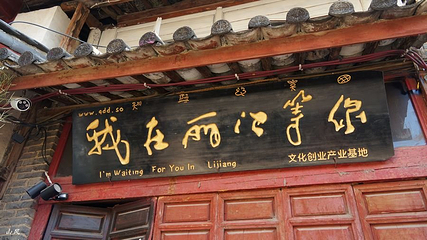 www.edd.so
我在丽江等你
I'm Waiting For You In Lijiang
文化创业产业基地